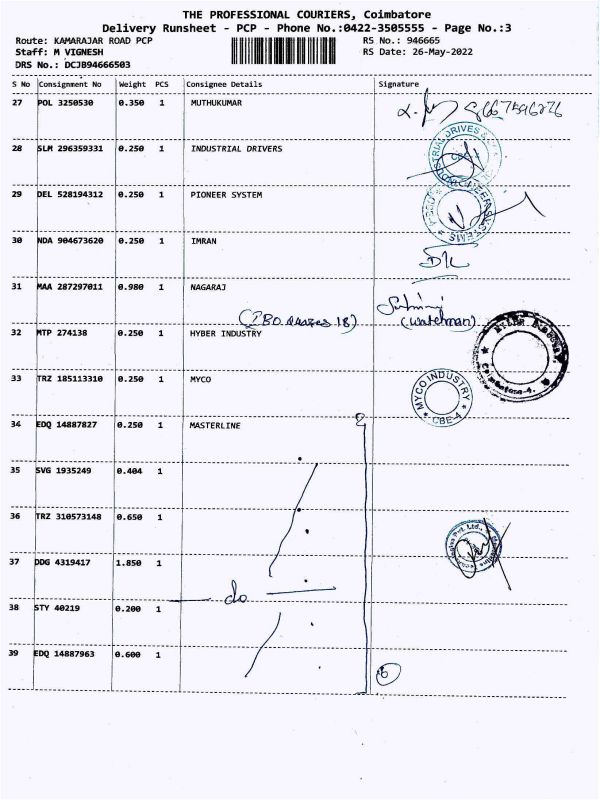 THE PROFESSIONAL COURIERS, Coimbatore
Delivery Runsheet - PCP - Phone No.:0422-3505555 - Page No.:3
Route: KAMARAJAR ROAD PCP RS No.: 946665
Staff: M VIGNESH RS Date: 26-May-2022
DRS No.: DCJB94666503
S No Consignment No Weight PCS Consignee Details Signature
27 POL 3250530 0.350 1 MUTHUKUMAR
28 SLM 296359331 0.250 1 INDUSTRIAL DRIVERS
29 DEL 528194312 0.250 1 PIONEER SYSTEM
30 NDA 904673620 0.250 1 IMRAN
31 MAA 287297011 0.980 1 NAGARAJ
(watchman)
32 MTP 274138 0.250 1 HYBER INDUSTRY
33 TRZ 185113310 0.250 1 MYCO
MYCO INDUSTRY
CBE-4
Coimbatore-4.
34 EDQ 14887827 0.250 1 MASTERLINE
35 SVG 1935249 0.404 1
36 TRZ 310573148 0.650 1
37 DDG 4319417 1.850 1
do
38 STY 40219 0.200 1
39 EDQ 14887963 0.600 1
6